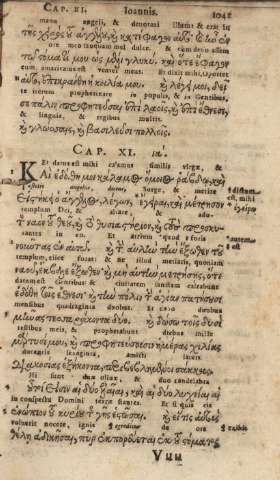 CAP. XI. Ioannis. 1041
manu angeli, & deuoraui illum: & erat in
τῆς χειρὸς τοῦ ἀγγέλου, κὶ κατέφαγον αὐτὸ· κὶ ἦν ἐν
ore meo tanquam mel dulce. & cum deuorassem
τῷ στόματί μου ὡς μέλι γλυκύ. κὶ ὅτε ἔφαγον
eum, amaricatus est venter meus. Et dixit mihi, Oportet
αὐτὸ, ἐπικράνθη ἡ κοιλία μου. κὶ λέγει μοι, δεῖ
te iterum prophetizare in populis, & in Gentibus,
σε πάλιν προφητεῦσαι ἐπὶ λαοῖς, κὶ ἐπὶ ἔθνεσι,
& linguis, & regibus multis.
κὶ γλώσσαις, κὶ βασιλεῦσι πολλοῖς.
CAP. XI. ια.
Et datus est mihi calamus similis virgæ, &
ΚΑὶ ἐδόθη μοι κάλαμος ὅμοιος ῥάβδῳ, κὶ
angelus, Surge, & metire
εἱστήκει ὁ ἄγγελος, λέγων, ἔγειραι, κὶ μέτρησον
templum Dei, & altare, & ado
τὸν ναὸν τοῦ θεοῦ, κὶ τὸ θυσιαστήριον, κὶ τοὺς προσκυ-
in eo. atrium foris
νοῦντας ἐν αὐτῷ. κὶ τὴν αὐλὴν τὴν ἔξωθεν τοῦ
templum, eiice foras: & ne illud metiaris, quoniam
ναοῦ, ἔκβαλε ἔξωθεν· κὶ μὴ αὐτὴν μετρήσῃς, ὅτι
datum est Gentibus: & ciuitatem sanctam calcabunt
ἐδόθη τοῖς ἔθνεσι· κὶ τὴν πόλιν τὴν ἁγίαν πατήσουσι
mensibus quadraginta duobus. Et dabo duobus
μῆνας τεσσαράκοντα δύο. κὶ δώσω τοῖς δυσὶ
testibus meis, & prophetabunt diebus mille
μάρτυσί μου, κὶ προφητεύσουσιν ἡμέρας χιλίας
ducentis sexaginta, amicti saccis.
διακοσίας ἑξήκοντα, περιβεβλημένοι σάκκους.
Hi sunt duæ oliuæ, & duo candelabra
οὗτοί εἰσιν αἱ δύο ἐλαῖαι, κὶ αἱ δύο λυχνίαι αἱ
in conspectu Domini terræ stantes. Et si quis eis
ἐνώπιον τοῦ κυρίου τῆς γῆς ἑστῶσαι. κὶ εἴ τις αὐτοὺς
voluerit nocere, ignis de ore
θέλῃ ἀδικῆσαι, πῦρ ἐκπορεύεται ἐκ τοῦ στόματος
Vuu